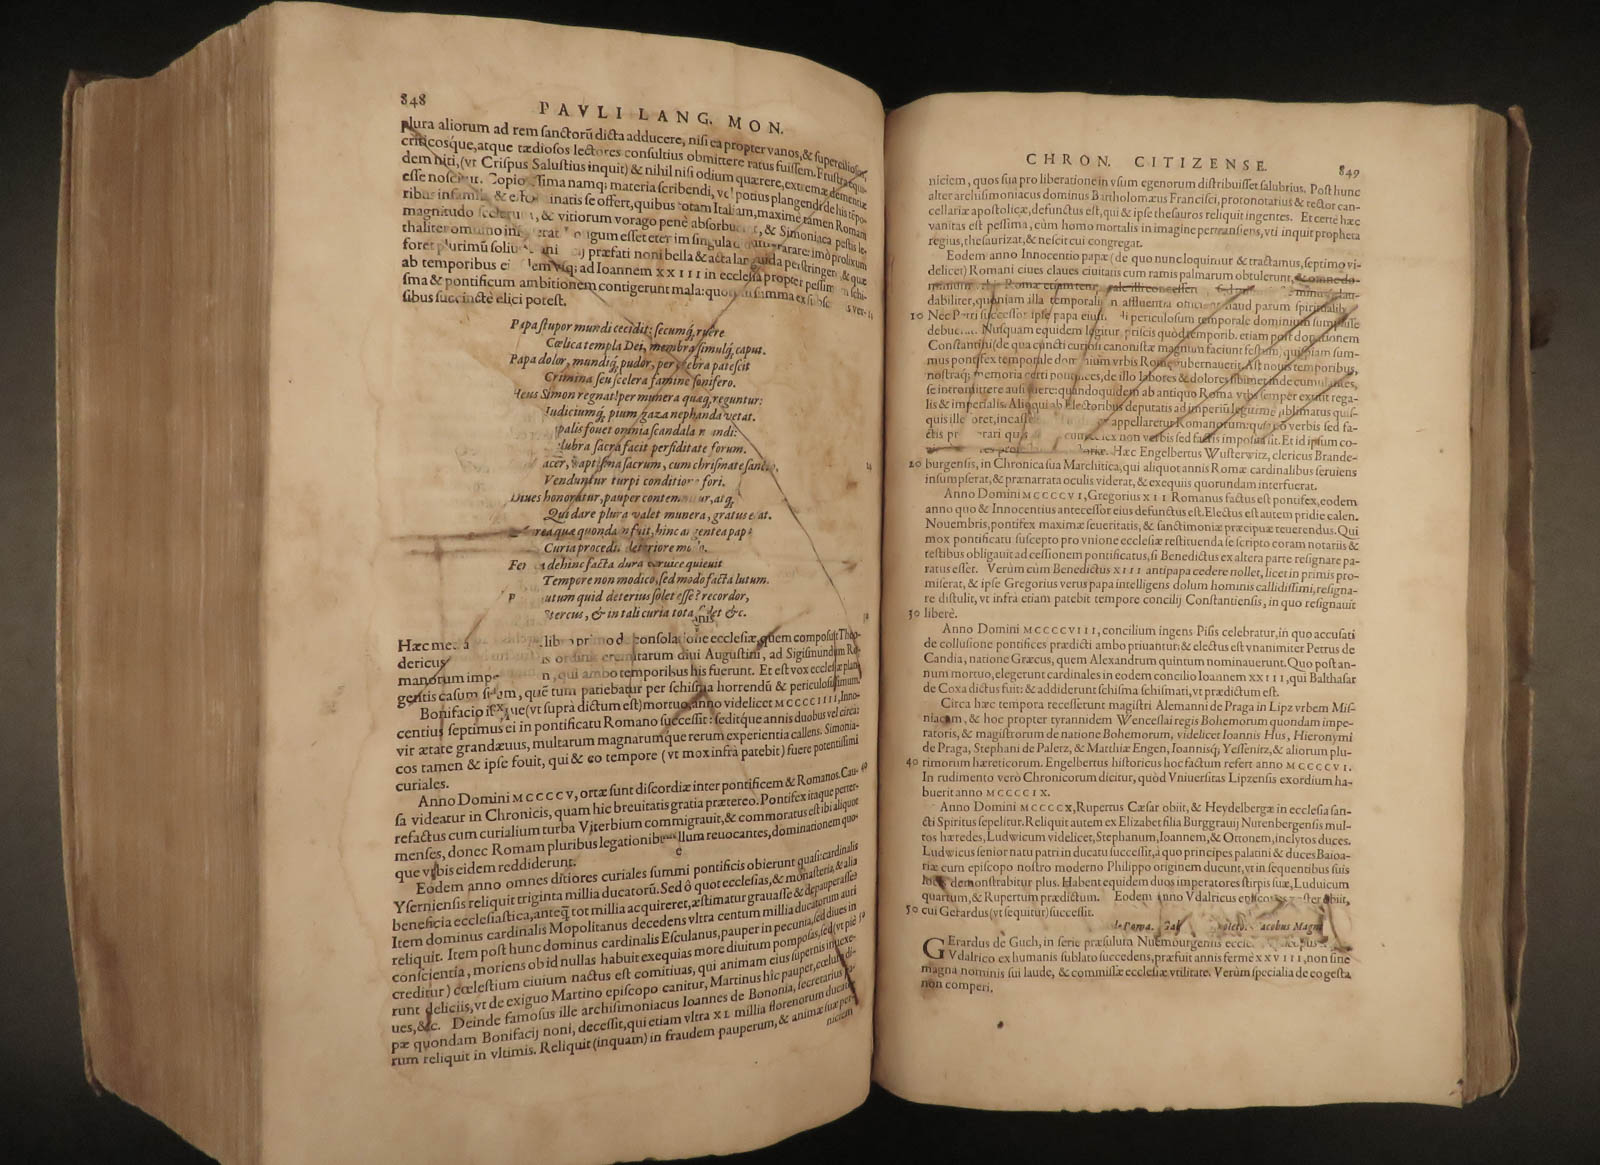 848
PAVLI LANG. MON.
plura aliorum ad rem sanctorũ dicta adducere, nisi ea propter vanos, & superciliosos,
criticosq́ue, atque tædiosos lectores consultius obmittere ratus fuissem. Frustra equi-
dem niti, (vt Crispus Salustius inquit) & nihil nisi odium quærere, extremæ dementiæ
esse noscitur. Copiosissima namq; materia scribendi, vel potius plangendi de his tẽpo-
ribus infamia & se offert, quibus totam Italiam, maxime tamen Romam
magnitudo scelerum, & vitiorum vorago penè absorbuerat, & Simoniaca pestis le-
thaliter omnino longum esset etenim singula imò prolixum
foret plurimũ præfati noni bella & acta lar perstringere, & quæ
ab temporibus eiusdem vsq; ad Ioannem XXIII in ecclesia propter pessima schi-
sma & pontificum ambitionem contigerunt mala: quorum summa ex subscriptis ver-
sibus succinctè elici potest.
Papa stupor mundi cecidit: secumq́, ruere
Cœlica templa Dei, membra simulq́, caput.
Papa dolor, mundiq́, pudor, per crebra patescit
Crimina seu scelera famine sonifero.
Heus Simon regnat! per munera quæq, reguntur:
Iudiciumq́, pium gaza nephanda vetat.
palis fouet omnia scandala mundi:
lubra sacra facit perfiditate forum.
acer, baptisma sacrum, cum chrismate sancto,
Venduntur turpi conditione fori.
Diues honoratur, pauper contemnitur, atq́,
Qui dare plura valet munera, gratus erat.
rea quæ quondam fuit, hinc argentea papæ
Curia procedit deteriore modo.
Ferrea dehinc facta dura ceruice quieuit
Tempore non modico, sed modo facta lutum.
utum quid deterius solet esse? recordor,
Stercus, & in tali curia tota &c.
Hæc libro primo de consolatione ecclesiæ, quem composuit Theo-
dericus ordinis eremitarum diui Augustini, ad Sigismundum Ro-
manorum imp n, qui ambo temporibus his fuerunt. Et est vox ecclesiæ plan-
gentis casum suum, quẽ tum patiebatur per schisma horrendũ & periculosissimum.
Bonifacio itaque (vt suprà dictum est) mortuo, anno videlicet MCCCCIIII, Inno-
centius septimus ei in pontificatu Romano successit: seditq́ue annis duobus vel circa:
vir ætate grandæuus, multarum magnarumq́ue rerum experientia callens. Simonia-
cos tamen & ipse fouit, qui & eo tempore (vt mox infrà patebit) fuere potentissimi
curiales.
Anno Domini MCCCCV, ortæ sunt discordiæ inter pontificem & Romanos. Cau- 40
sa videatur in Chronicis, quam hic breuitatis gratia prætereo. Pontifex itaque perter-
refactus cum curialium turba Viterbium commigrauit, & commoratus est ibi aliquot
menses, donec Romam pluribus legationibus illum reuocantes, dominationem quo-
que vrbis eidem reddiderunt.
Eodem anno omnes ditiores curiales summi pontificis obierunt quasi: cardinalis
Yserniensis reliquit triginta millia ducatorũ. Sed ô quot ecclesias, & monasteria, & alia
beneficia ecclesiastica, anteq̃ tot millia acquireret, æstimatur grauasse & depauperasse?
Item dominus cardinalis Mopolitanus decedens vltra centum millia ducatorum auri
reliquit. Item post hunc dominus cardinalis Esculanus, pauper in pecunia, sed diues in
conscientia, moriens ob id nullas habuit exequias more diuitum pomposas, sed (vt piè 50
creditur) cœlestium ciuium nactus est comitiuas, qui animam eius supernis inuexe-
runt deliciis, vt de exiguo Martino episcopo canitur, Martinus hic pauper, cœlum di-
ues, &c. Deinde famosus ille archisimoniacus Ioannes de Bononia, secretarius pa-
pæ quondam Bonifacij noni, decessit, qui etiam vltra XL millia florenorum ducato-
rum reliquit in vltimis. Reliquit (inquam) in fraudem pauperum, & animæ suæ per-
niciem
CHRON. CITIZENSE.
849
niciem, quos sua pro liberatione in vsum egenorum distribuisset salubrius. Post hunc
alter archisimoniacus dominus Bartholomæus Francisci, protonotarius & rector can-
cellariæ apostolicæ, defunctus est, qui & ipse thesauros reliquit ingentes. Et certè hæc
vanitas est pessima, cùm homo mortalis in imagine pertransiens, vti inquit propheta
regius, thesaurizat, & nescit cui congregat.
Eodem anno Innocentio papæ (de quo nunc loquimur & tractamus, septimo vi-
delicet) Romani ciues claues ciuitatis cum ramis palmarum obtulerunt, & omne do-
minium vrbis Romæ etiam temporale illi concesserunt. Sed minus lau-
dabiliter, quoniam illa temporalium affluentia officit haud parum spiritualib.
10 Nec Petri successor ipse papa eiusmodi periculosum temporale dominium sumpsisse
debuerat. Nusquam equidem legitur, priscis quòd temporib. etiam post donationem
Constantini (de qua cuncti curiosi canonistæ magnum faciunt festum) quispiam sum-
mus pontifex temporale dominium vrbis Romæ gubernauerit. Ast nouis temporibus,
nostraq́; memoria certi pontifices, de illo labores & dolores sibimet inde cumulantes,
se intromittere ausi fuere: quandoquidem ab antiquo Roma vrbs semper extitit rega-
lis & imperialis. Alioqui ab Electoribus deputatis ad imperiũ legitimè sublimatus quis-
quis ille foret, incassum appellaretur Romanorum: quippe non verbis sed fa-
ctis pr non verbis sed factis imposuit. Et id ipsum co-
Hæc Engelbertus Wusterwitz, clericus Brande-
20 burgensis, in Chronica sua Marchitica, qui aliquot annis Romæ cardinalibus seruiens
insumpserat, & prænarrata oculis viderat, & exequiis quorundam interfuerat.
Anno Domini MCCCCVI, Gregorius XII Romanus factus est pontifex, eodem
anno quo & Innocentius antecessor eius defunctus est. Electus est autem pridie calen.
Nouembris, pontifex maximæ seueritatis, & sanctimoniæ præcipuæ reuerendus. Qui
mox pontificatu suscepto pro vnione ecclesiæ restituenda se scripto coram notariis &
testibus obligauit ad cessionem pontificatus, si Benedictus ex altera parte resignare pa-
ratus esset. Verùm cùm Benedictus XIII antipapa cedere nollet, licet in primis pro-
miserat, & ipse Gregorius verus papa intelligens dolum hominis callidissimi, resigna-
re distulit, vt infra etiam patebit tempore concilij Constantiensis, in quo resignauit
30 liberè.
Anno Domini MCCCCVIII, concilium ingens Pisis celebratur, in quo accusati
de collusione pontifices prædicti ambo priuantur: & electus est vnanimiter Petrus de
Candia, natione Græcus, quem Alexandrum quintum nominauerunt. Quo post an-
num mortuo, elegerunt cardinales in eodem concilio Ioannem XXIII, qui Balthasar
de Coxa dictus fuit: & addiderunt schisma schismati, vt prædictum est.
Circa hæc tempora recesserunt magistri Alemanni de Praga in Lipz vrbem Mis-
niacam, & hoc propter tyrannidem Wenceslai regis Bohemorum quondam impe-
ratoris, & magistrorum de natione Bohemorum, videlicet Ioannis Hus, Hieronymi
de Praga, Stephani de Paletz, & Matthiæ Engen, Ioannisq́; Yessenitz, & aliorum plu-
40 rimorum hæreticorum. Engelbertus historicus hoc factum refert anno MCCCCVI.
In rudimento verò Chronicorum dicitur, quòd Vniuersitas Lipzensis exordium ha-
buerit anno MCCCCIX.
Anno Domini MCCCCX, Rupertus Cæsar obiit, & Heydelbergæ in ecclesia san-
cti Spiritus sepelitur. Reliquit autem ex Elizabet filia Burggrauij Nurenbergensis mul-
tos hæredes, Ludwicum videlicet, Stephanum, Ioannem, & Ottonem, inclytos duces.
Ludwicus senior natu patri in ducatu successit, à quo principes palatini & duces Baioa-
riæ cum episcopo nostro moderno Philippo originem ducunt, vt in sequentibus suis
locis demonstrabitur plus. Habent equidem duos imperatores stirpis suæ, Luduicum
quartum, & Rupertum prædictum. Eodem anno Vdalricus episcopus noster obiit,
50 cui Gerardus (vt sequitur) successit.
Roma. Iacobus Magni
GErardus de Guch, in serie præsulum Nuemburgensis
Vdalrico ex humanis sublato succedens, præfuit annis fermè XXVIII, non sine
magna nominis sui laude, & commissæ ecclesiæ vtilitate. Verùm specialia de eo gesta
non comperi.